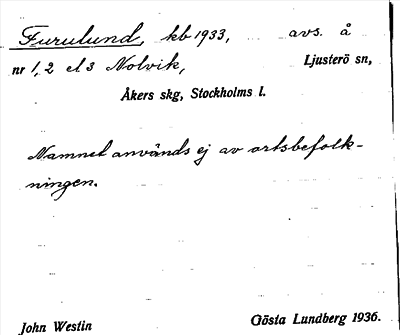 Furulund, kb 1933, avs. å
nr 1, 2 el 3 Nolvik, Ljusterö sn,
Åkers skg, Stockholms l.
Namnet används ej av ortsbefolk-
ningen.
John Westin Gösta Lundberg 1936.